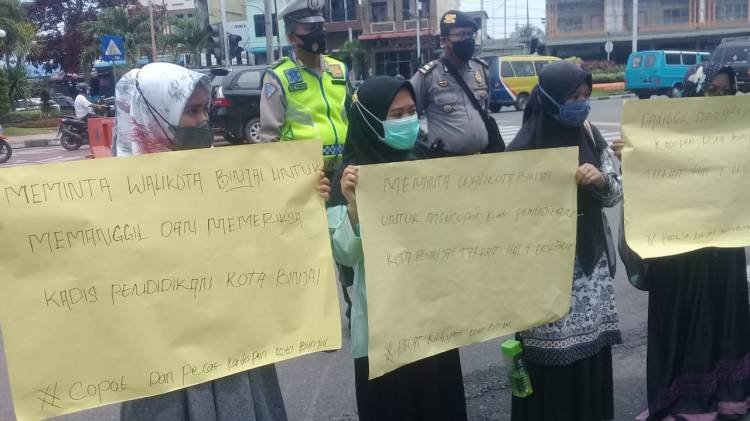 MEMINTA WALIKOTA BINJAI UNTUK
MEMANGGIL DAN MEMERIKSA
KADIS PENDIDIKAN KOTA BINJAI
# COPOT DAN PECAT kadispen kota Binjai
MEMINTA WALIKOTA BINJAI
UNTUK MENCOPOT KADIS PENDIDIKAN
KOTA BINJAI TERKAIT HAL TERSEBUT
# PECAT Kadispen kota Binjai
PANGGIL DAN
KADISPEN KOTA
TERKAIT HAL